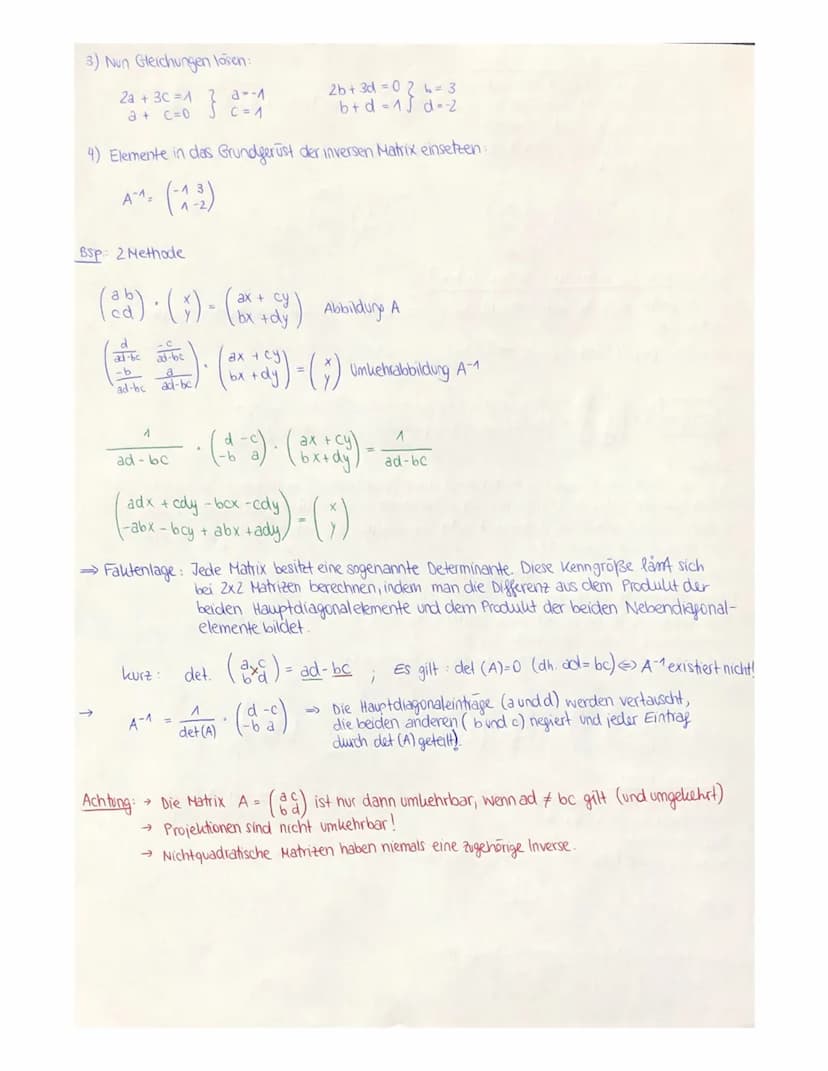 3) Nun Gleichungen lösen:
2a + 3c = 1 } a = -1 2b + 3d = 0 } b = 3
a + c = 0 } c = 1 b + d = 1 } d = -2
4) Elemente in das Grundgerüst der inversen Matrix einsetzen:
A⁻¹ = (-1 3
1 -2)
Bsp: 2 Methode
(a b
c d) · (x
y) = (ax + cy
bx + dy) Abbildung A
(d/ad-bc -c/ad-bc
-b/ad-bc a/ad-bc) · (ax + cy
bx + dy) = (x
y) Umkehrabbildung A⁻¹
1/ad - bc · (d -c
-b a) · (ax + cy
bx + dy) = 1/ad - bc
(adx + cdy - bcx - cdy
-abx - bcy + abx + ady) = (x
y)
⇒ Faktenlage: Jede Matrix besitzt eine sogenannte Determinante. Diese Kenngröße lässt sich
bei 2x2 Matrizen berechnen, indem man die Differenz aus dem Produkt der
beiden Hauptdiagonalelemente und dem Produkt der beiden Nebendiagonal-
elemente bildet.
kurz: det. (a c
b d) = ad - bc ; Es gilt: det (A)=0 (dh. ad = bc) ⇔ A⁻¹ existiert nicht!
→ A⁻¹ = 1/det(A) · (d -c
-b a) ⇒ Die Hauptdiagonaleinträge (a und d) werden vertauscht,
die beiden anderen (b und c) negiert und jeder Eintrag
durch det (A) geteilt!
Achtung: → Die Matrix A = (a c
b d) ist nur dann umkehrbar, wenn ad ≠ bc gilt (und umgekehrt)
→ Projektionen sind nicht umkehrbar!
→ Nichtquadratische Matrizen haben niemals eine zugehörige Inverse.